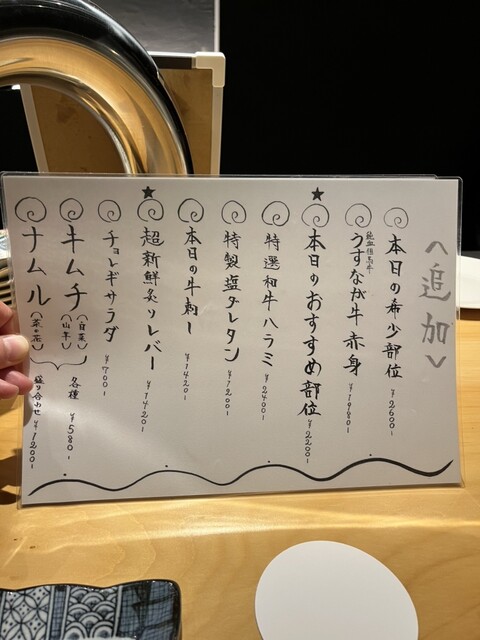 〈追加〉
本日の希少部位 ¥2600-
うすなが牛 赤身 ¥1980-
★
本日のおすすめ部位 ¥2200-
特選和牛ハラミ ¥2400-
特製塩ダレタン ¥1200-
本日の牛刺し ¥1420-
★
超新鮮炙りレバー ¥1420-
チョレギサラダ ¥700-
キムチ(白菜)(山芋)
ナムル(菜の花)
各種 ¥580-
盛り合わせ ¥1200-